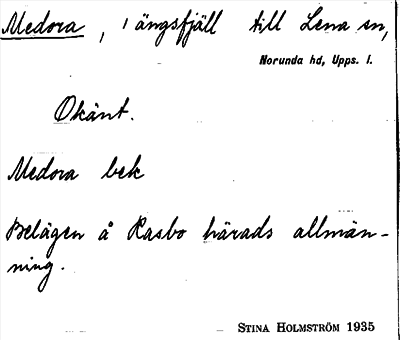 Medora, 1 ängsfjäll till Lena sn,
Norunda hd, Upps. l.
Okänt.
Medora bek
Belägen å Rasbo härads allmän-
ning.
STINA HOLMSTRÖM 1935